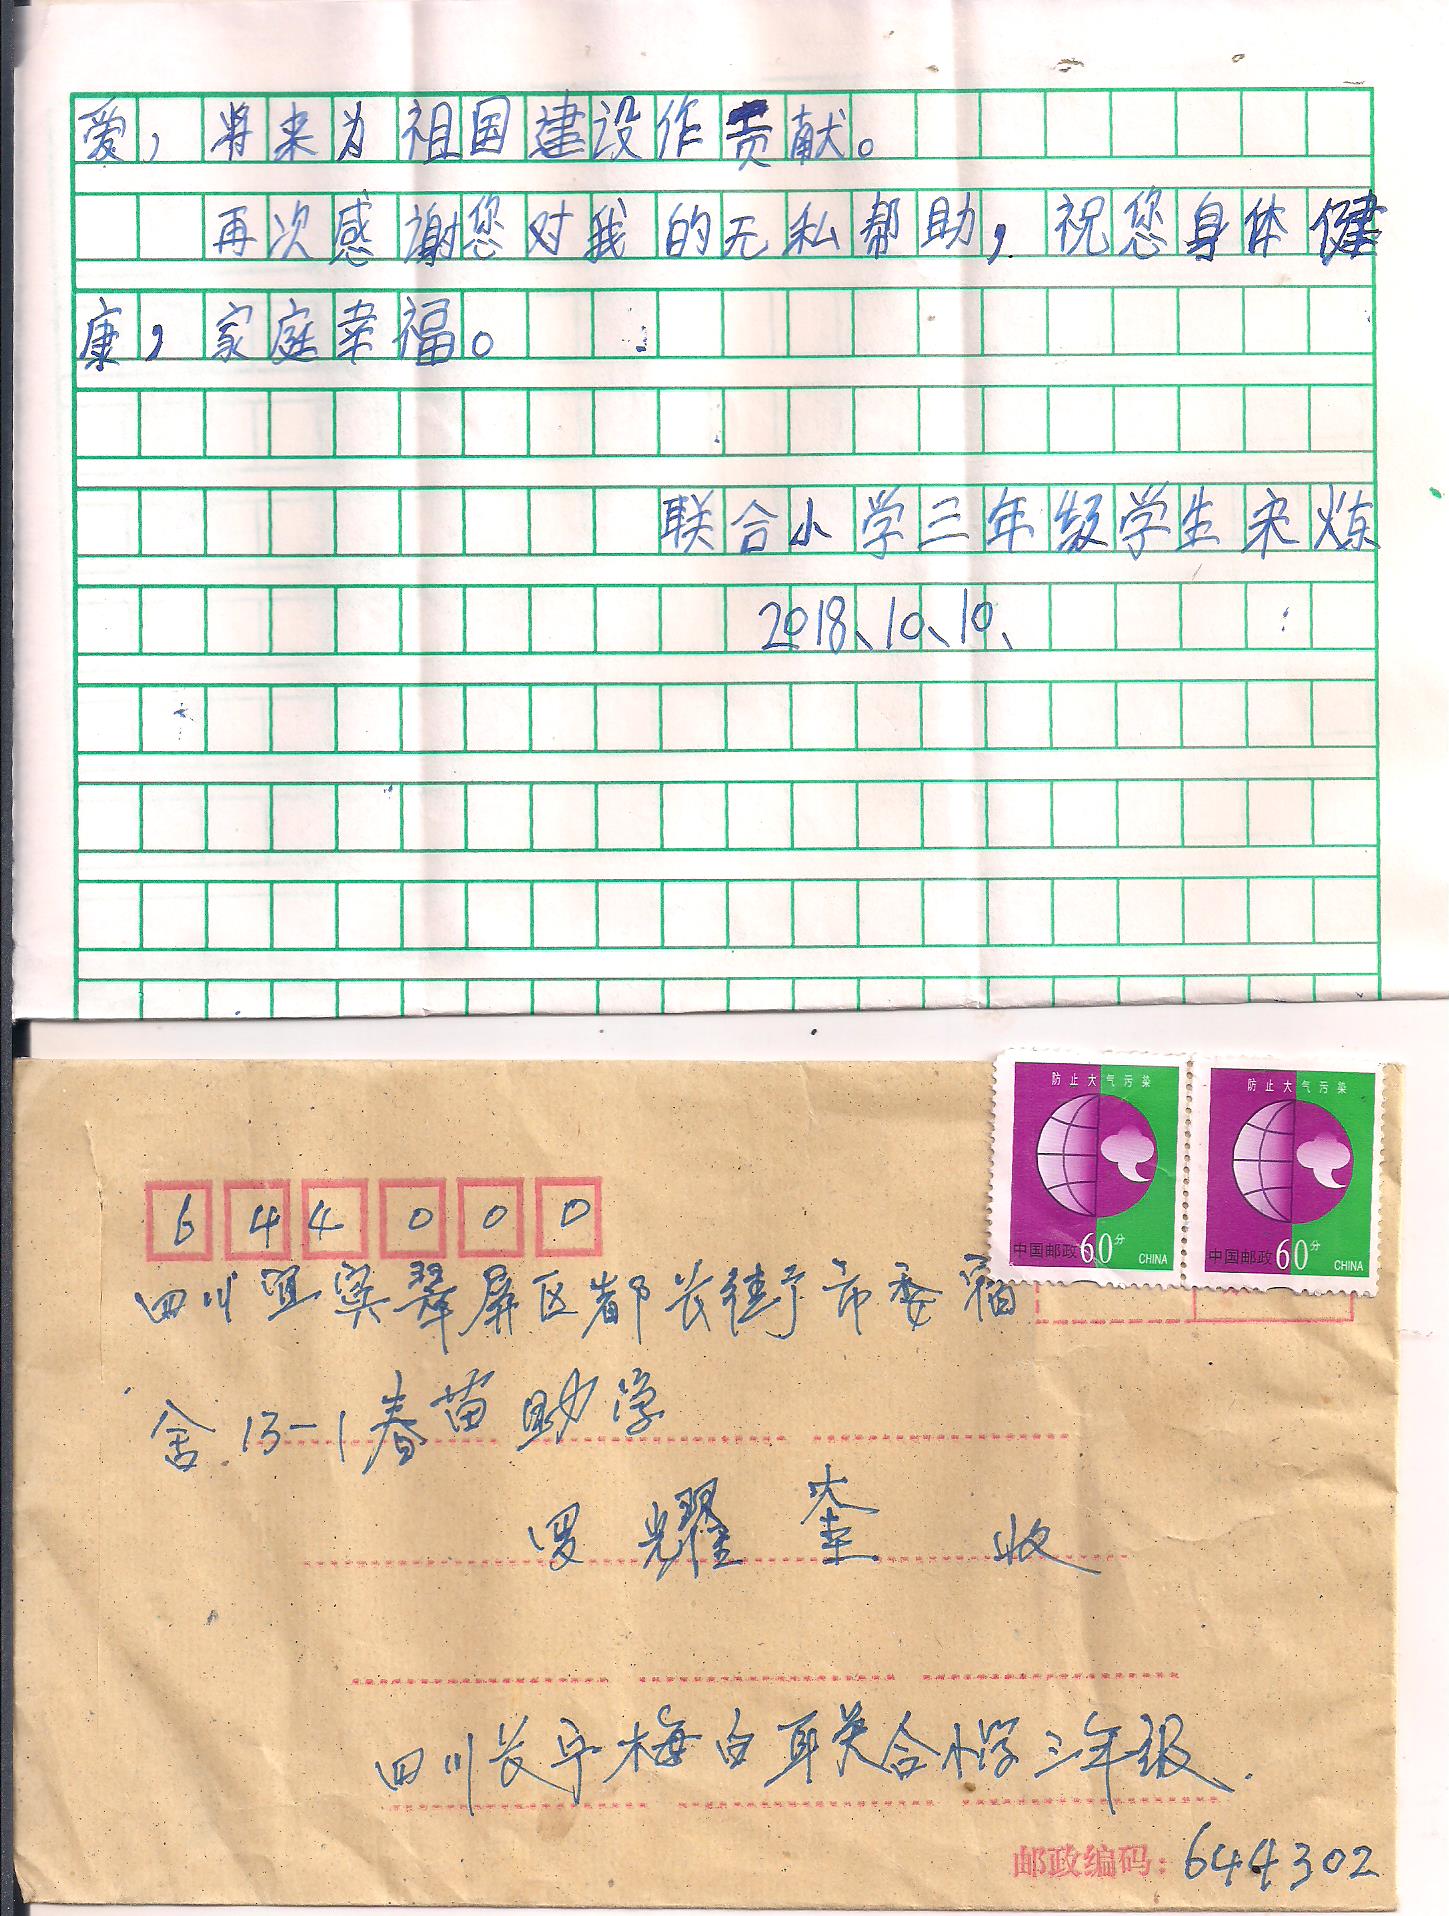 爱，将来为祖国建设作贡献。
再次感谢您对我的无私帮助，祝您身体健
康，家庭幸福。
联合小学三年级学生宋炼
2018、10、10、
防止大气污染
中国邮政60分 CHINA
防止大气污染
中国邮政60分 CHINA
644000
四川宜宾翠屏区都长街市委宿
舍13-1春苗助学
罗耀奎 收
四川长宁梅白联合小学三年级.
邮政编码：644302